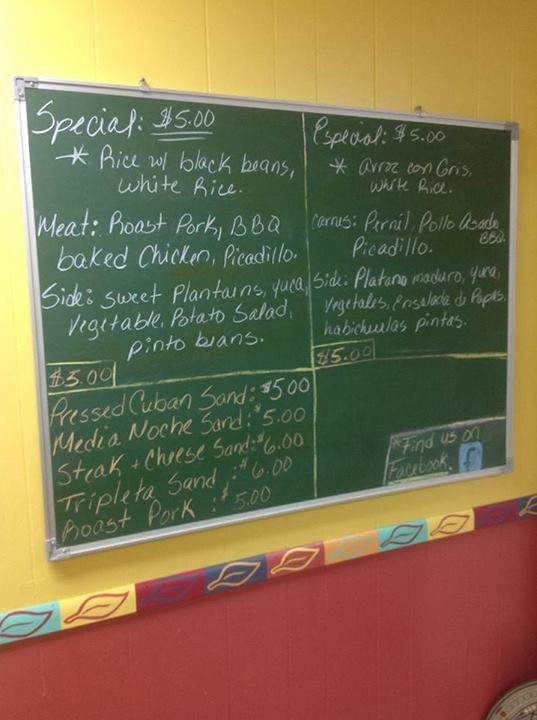 Special: $5.00
* Rice w/ black beans,
white Rice.
Meat: Roast Pork, BBQ
baked Chicken, Picadillo.
Side: Sweet Plantains, yuca,
vegetable, Potato Salad,
pinto beans.
$5.00
Especial: $5.00
* arroz con Gris,
white Rice.
Carnes: Pernil, Pollo Asado
BBQ
Picadillo.
Side: Platano maduro, yuca,
vegetales, Ensalada de Papas,
habichuelas pintas.
$5.00
Pressed Cuban Sand: $5.00
Media Noche Sand: $5.00
Steak + Cheese Sand: $6.00
Tripleta Sand : $6.00
Roast Pork : $5.00
*Find us on
Facebook. f